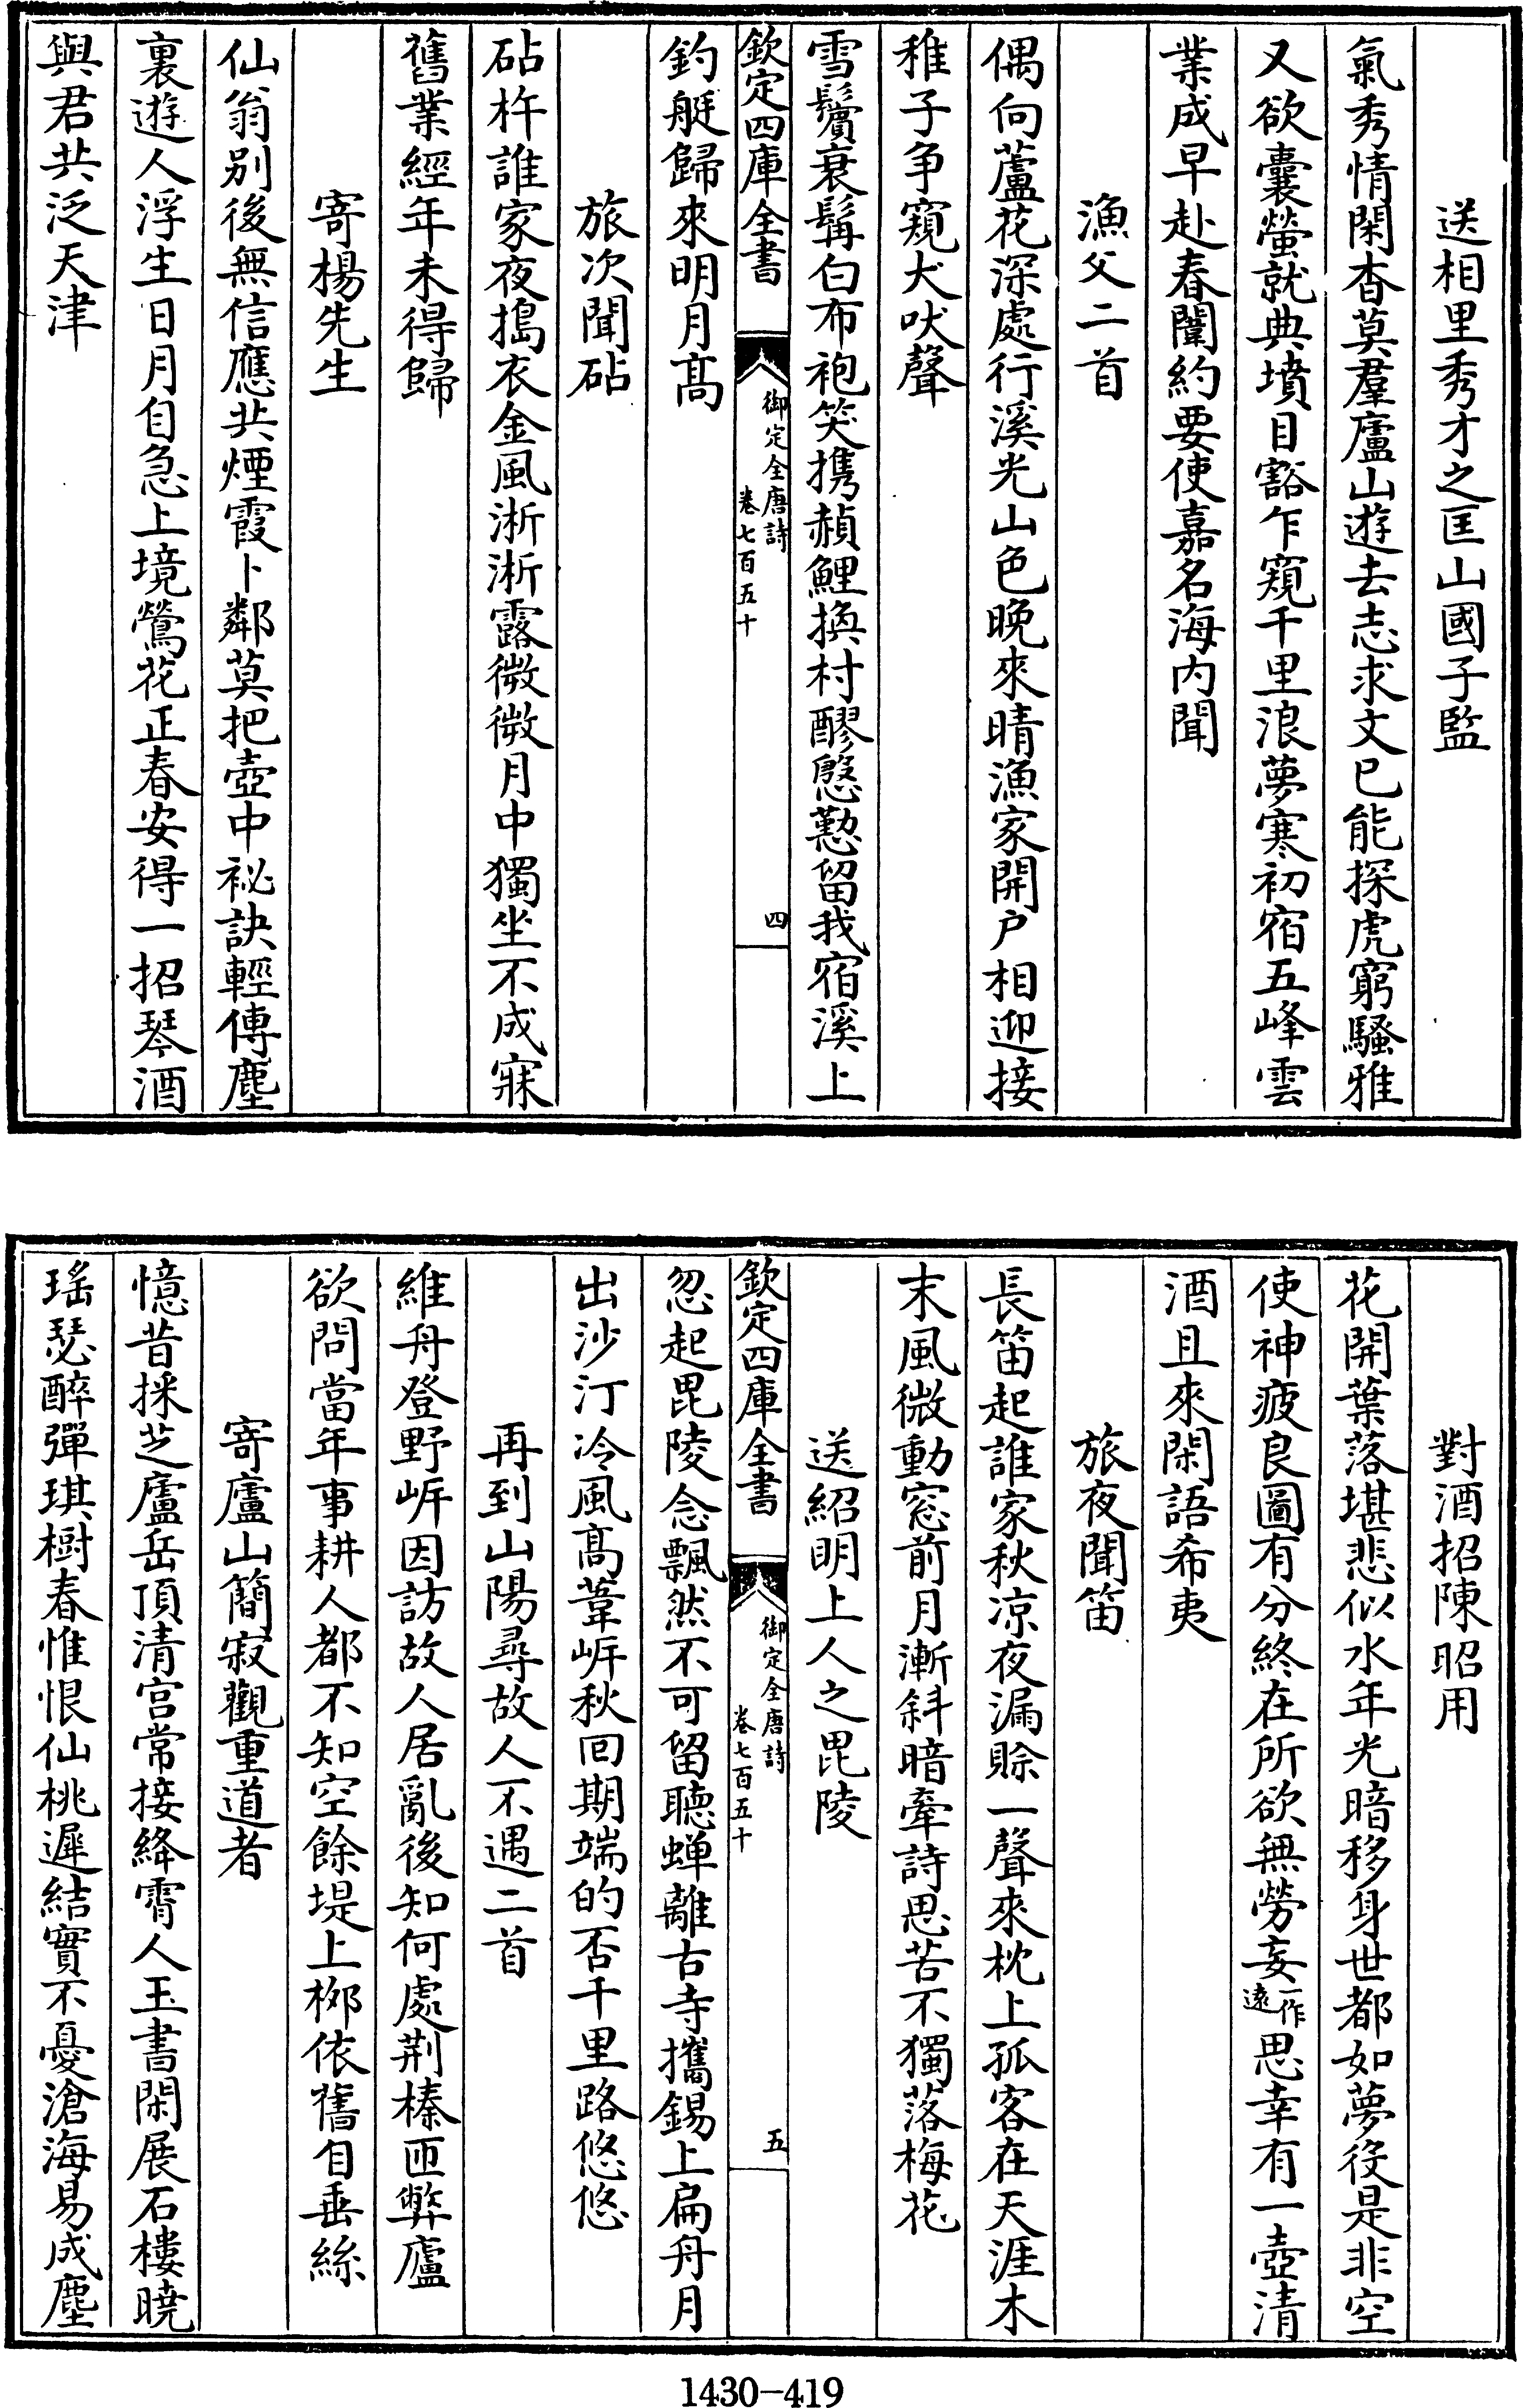 送相里秀才之匡山國子監
氣秀情閑杳莫羣廬山遊去志求文已能探虎窮騷雅
又欲囊螢就典墳目豁乍窺千里浪夢寒初宿五峰雲
業成早赴春闈約要使嘉名海内聞
漁父二首
偶向蘆花深處行溪光山色晚來晴漁家開户相迎接
稚子争窺犬吠聲
雪鬢衰髯白布袍笑携赬鯉換村醪慇懃留我宿溪上
欽定四庫全書
御定全唐詩
卷七百五十
四
釣艇歸來明月髙
旅次聞砧
砧杵誰家夜搗衣金風淅淅露微微月中獨坐不成寐
舊業經年未得歸
寄楊先生
仙翁别後無信應共煙霞卜鄰莫把壺中祕訣輕傳塵
裏遊人浮生日月自急上境鶯花正春安得一招琴酒
與君共泛天津
對酒招陳昭用
花開葉落堪悲似水年光暗移身世都如夢役是非空
使神疲良圖有分終在所欲無勞妄一作遠思幸有一壺清
酒且來閑語希夷
旅夜聞笛
長笛起誰家秋凉夜漏賒一聲來枕上孤客在天涯木
末風微動窓前月漸斜暗牽詩思苦不獨落梅花
送紹明上人之毘陵
欽定四庫全書
御定全唐詩
卷七百五十
五
忽起毘陵念飄然不可留聽蟬離古寺攜錫上扁舟月
出沙汀冷風髙葦岍秋回期端的否千里路悠悠
再到山陽尋故人不遇二首
維舟登野岍因訪故人居亂後知何處荆榛匝弊廬
欲問當年事耕人都不知空餘堤上栁依舊自垂絲
寄廬山簡寂觀重道者
憶昔採芝廬岳頂清宫常接絳霄人玉書閑展石樓曉
瑤瑟醉彈琪樹春惟恨仙桃遲結實不憂滄海易成塵
1430-419